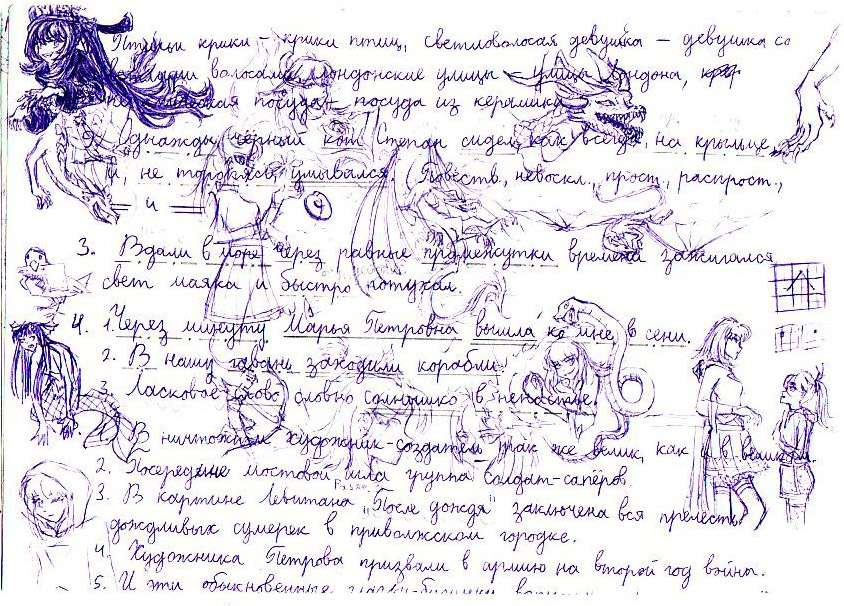 Птичьи крики – крики птиц, светловолосая девушка – девушка со
светлыми волосами, лондонские улицы – улицы Лондона,
керамическая посуда – посуда из керамики.
2. Однажды чёрный кот Степан сидел, как всегда, на крыльце
и, не торопясь, умывался. (Повеств., невоскл., прост., распрост.,
и
3. Вдали в море через равные промежутки времени зажигался
свет маяка и быстро потухал.
4. 1. Через минуту Марья Петровна вышла ко мне в сени.
2. В нашу гавань заходили корабли.
3. Ласковое слово словно солнышко в ненастье.
В ничтожном художник-создатель так же велик, как и в великом.
2. Посередине мостовой шла группа солдат-сапёров.
3. В картине Левитана „После дождя" заключена вся прелесть
дождливых сумерек в приволжском городке.
4. Художника Петрова призвали в армию на второй год войны.
5. И эти обыкновенные